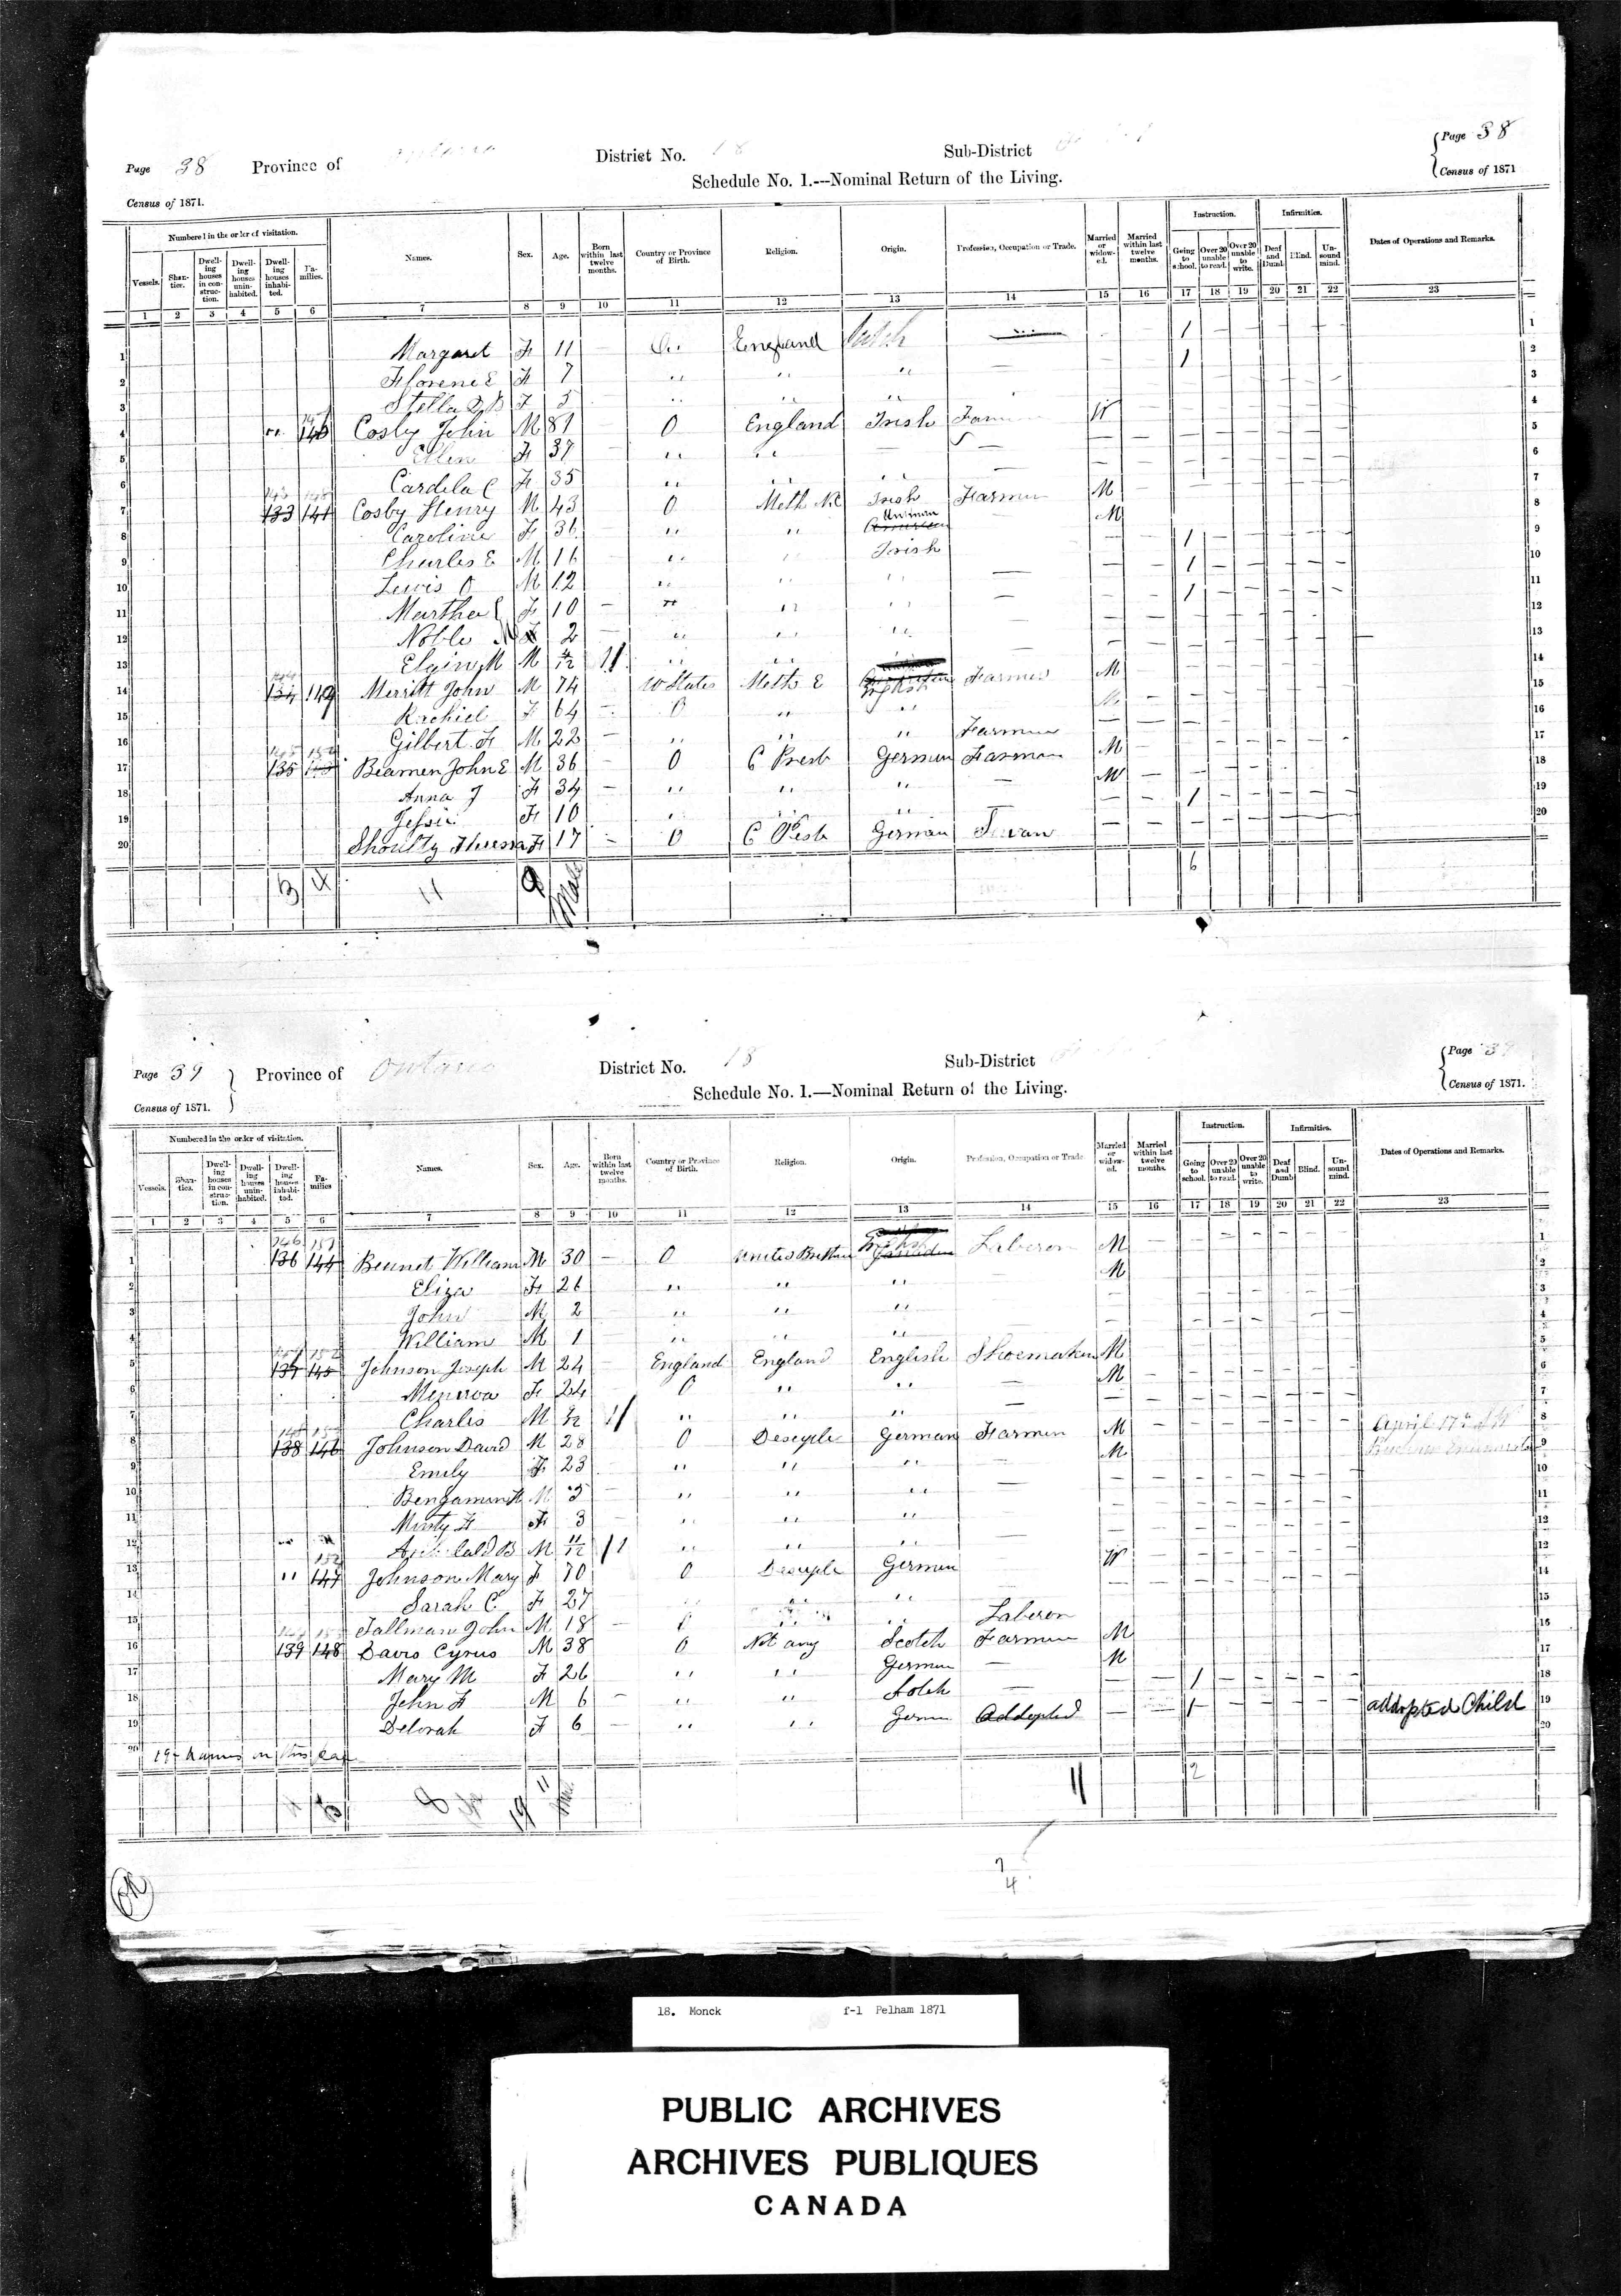 Page 38 Province of Ontario District No. 18 Sub-District { Page 38
Census of 1871. Schedule No. 1.---Nominal Return of the Living. Census of 1871
Numbered in the order of visitation. Names. Sex. Age. Born within last twelve months. Country or Province of Birth. Religion. Origin. Profession, Occupation or Trade. Married or widowed. Married within last twelve months. Instruction. Infirmities. Dates of Operations and Remarks.
Vessels. Shanties. Dwelling houses in construction. Dwelling houses uninhabited. Dwelling houses inhabited. Families. Going to school. Over 20 unable to read. Over 20 unable to write. Deaf and Dumb. Blind. Unsound mind.
1 2 3 4 5 6 7 8 9 10 11 12 13 14 15 16 17 18 19 20 21 22 23
1 Margaret F 11 — O.. England — — — 1 — — — — — 1
2 Florence E F 7 — " " " — — — 1 — — — — — 2
3 Stella F " " " — — — 3
4 Cosby John M 81 — O England Irish W — 4
5 Ellen F 37 " " — — 5
6 Cardela C F 35 " " " — — 6
7 133 141 Cosby Henry M 43 O Meth Irish Farmer M — 7
8 Caroline F 36 " " M 8
9 Charles E M 16 " " Irish — — 1 9
10 Lewis O M 12 " " " — — 1 10
11 Martha F 10 — " " " — — 1 11
12 Noble M 2 — " " " — — 12
13 Elgin M M " " " — — 13
14 134 Merritt John M 74 — U States Meth E English Farmer M 14
15 Rachiel F 64 — O " " M 15
16 Gilbert F M 22 — " " " Farmer — 16
17 135 Beamer John E M 36 — O C Presb German Farman M 17
18 Anna J F 34 — " " " — M — 18
19 Jessie F 10 " " " — — 1 19
20 Shoultz F 17 — O C Presb German — 20
3 4 11 9 6
Page 39 } Province of Ontario District No. 18 Sub-District { Page 39
Census of 1871. Schedule No. 1.—Nominal Return of the Living. Census of 1871.
Numbered in the order of visitation. Names. Sex. Age. Born within last twelve months. Country or Province of Birth. Religion. Origin. Profession, Occupation or Trade. Married or widowed. Married within last twelve months. Instruction. Infirmities. Dates of Operations and Remarks.
Vessels. Shanties. Dwelling houses in construction. Dwelling houses uninhabited. Dwelling houses inhabited. Families Going to school. Over 20 unable to read. Over 20 unable to write. Deaf and Dumb. Blind. Unsound mind.
1 2 3 4 5 6 7 8 9 10 11 12 13 14 15 16 17 18 19 20 21 22 23
1 136 144 Bennet William M 30 — O Laberon M — 1
2 Eliza F 26 " " " M 2
3 John M 2 " " " — 3
4 William M 1 " " " — 4
5 137 145 Johnson Joseph M 24 — England England English Shoemaker M 5
6 Minerva F 24 O " " — M 6
7 Charles M " " " — — 7
8 138 146 Johnson David M 28 O Desciple German Farmer M — April 17th 8
9 Emily F 23 " " " M 9
10 Bengamin M " " " — 10
11 Minty F F 3 — " " " — 11
12 B M 11/12 " " " — 12
13 " 147 Johnson Mary F 70 O Desciple German W — 13
14 Sarah C F 27 " " — 14
15 Tallman John M 18 — " " Laberon 15
16 139 148 Davis Cyrus M 38 O Not any Scotch Farmer M 16
17 Mary M F 26 " " German — M 17
18 John F M 6 — " " — — 1 18
19 Deborah F 6 — " " Germ Addopted — — 1 addopted Child 19
20 19 names on this leaf 20
8 19 11 11 2
4
18. Monck f-1 Pelham 1871
PUBLIC ARCHIVES
ARCHIVES PUBLIQUES
CANADA